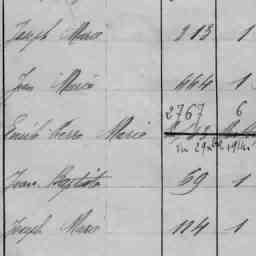 Joseph Marie 313 1
Jean Marie 444 1
2767 6
Pierre Marie
29 1914
Jean Baptiste 69 1
Joseph Marie 114 1